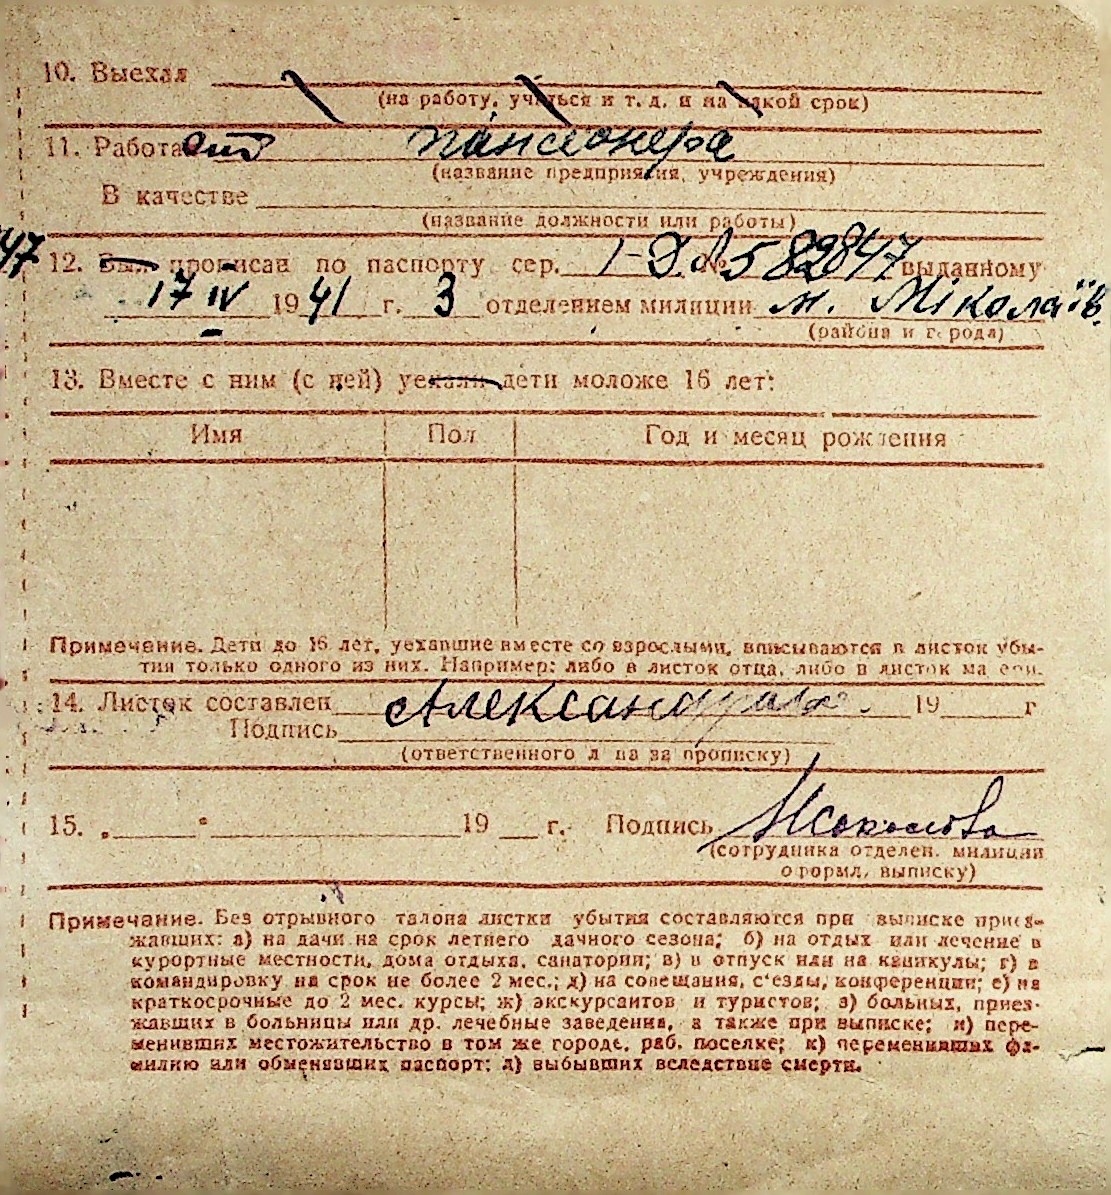 10. Выехал
(на работу, учиться и т. д. и на какой срок)
11. Работает пансеонера
(название предприятия, учреждения)
В качестве
(название должности или работы)
47 12. Был прописан по паспорту сер. 1-Э № 582847 выданному
17 IV 1941 г. 3 отделением милиции м. Міколаїв.
(района и города)
13. Вместе с ним (с ней) уехали дети моложе 16 лет:
Имя Пол Год и месяц рождения
Примечание. Дети до 16 лет, уехавшие вместе со взрослыми, вписываются в листок убы-
тия только одного из них. Например: либо в листок отца, либо в листок матери.
14. Листок составлен 19 г
Подпись
(ответственного лица за прописку)
15. „ “ 19 г. Подпись
(сотрудника отделен. милиции
оформл. выписку)
Примечание. Без отрывного талона листки убытия составляются при выписке приез-
жавших: а) на дачи на срок летнего дачного сезона; б) на отдых или лечение в
курортные местности, дома отдыха, санатории; в) в отпуск или на каникулы; г) в
командировку на срок не более 2 мес.; д) на совещания, с'езды, конференции; е) на
краткосрочные до 2 мес. курсы; ж) экскурсантов и туристов; з) больных, приез-
жавших в больницы или др. лечебные заведения, а также при выписке; и) пере-
менивших местожительство в том же городе, раб. поселке; к) переменивших фа-
милию или обменявших паспорт; л) выбывших вследствие смерти.